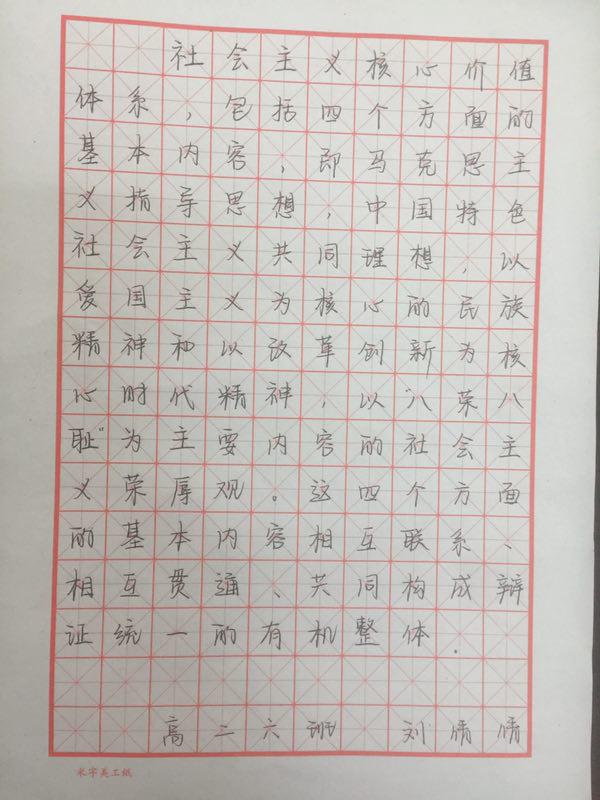 社会主义核心价值
体系，包括四个方面的
基本内容，即马克思主
义指导思想，中国特色
社会主义共同理想，以
爱国主义为核心的民族
精神和以改革创新为核
心时代精神，以"八荣八
耻"为主要内容的社会主
义荣辱观。这四个方面
的基本内容相互联系、
相互贯通、共同构成辩
证统一的有机整体.
高二六班 刘倩倩
米字美工纸